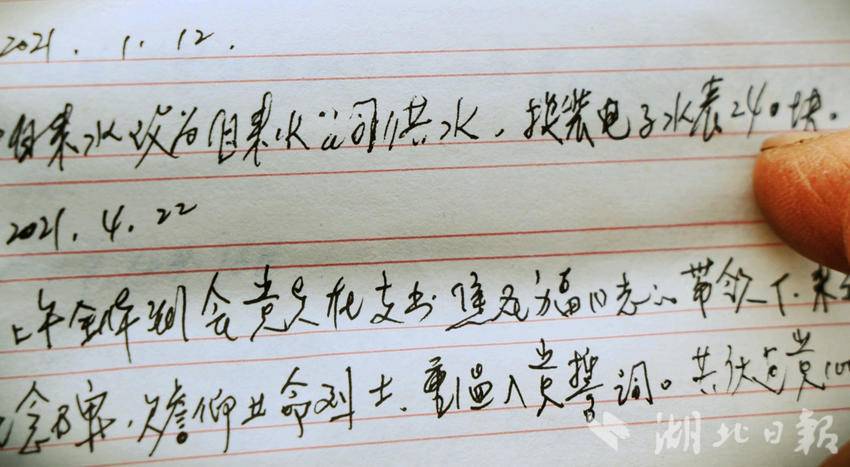 2021.1.12.
自来水改为自来水公司供水，换装电子水表240块。
2021.4.22
上午全体到会党员在支书焦同志的带领下.来
念碑.瞻仰革命烈士.重温入党誓词。共庆建党100
湖北日报